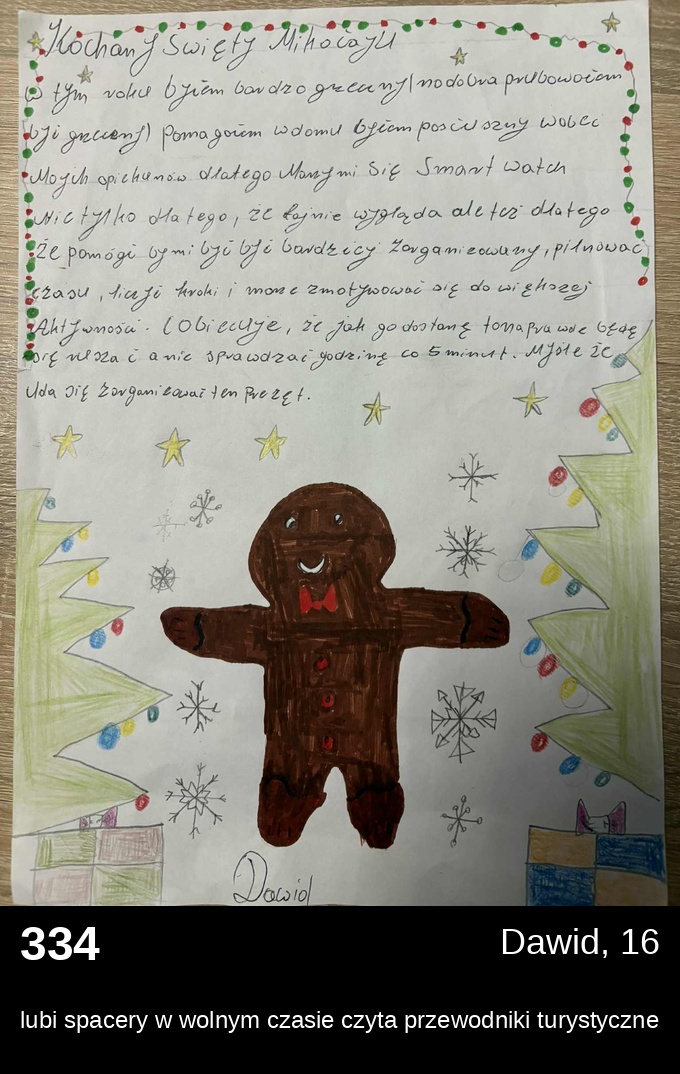 Kochany Święty Mikołaju
W tym roku byłem bardzo grzeczny (no dobra próbowałem
być grzeczny) pomagałem w domu byłem posłuszny wobec
Moich opiekunów dlatego Marzy mi Się Smart Watch
Nie tylko dlatego, że fajnie wygląda ale też dlatego
Że pomógł by mi być być bardziej zorganizowany, pilnować
czasu, liczyć kroki i może zmotywować się do większej
Aktywności. (Obiecuje, że jak go dostanę to naprawde będę
się ruszał a nie sprawdzać godzinę co 5 minut. Myśle że
Uda się zorganizować ten Prezęt.
Dawid
334
Dawid, 16
lubi spacery w wolnym czasie czyta przewodniki turystyczne